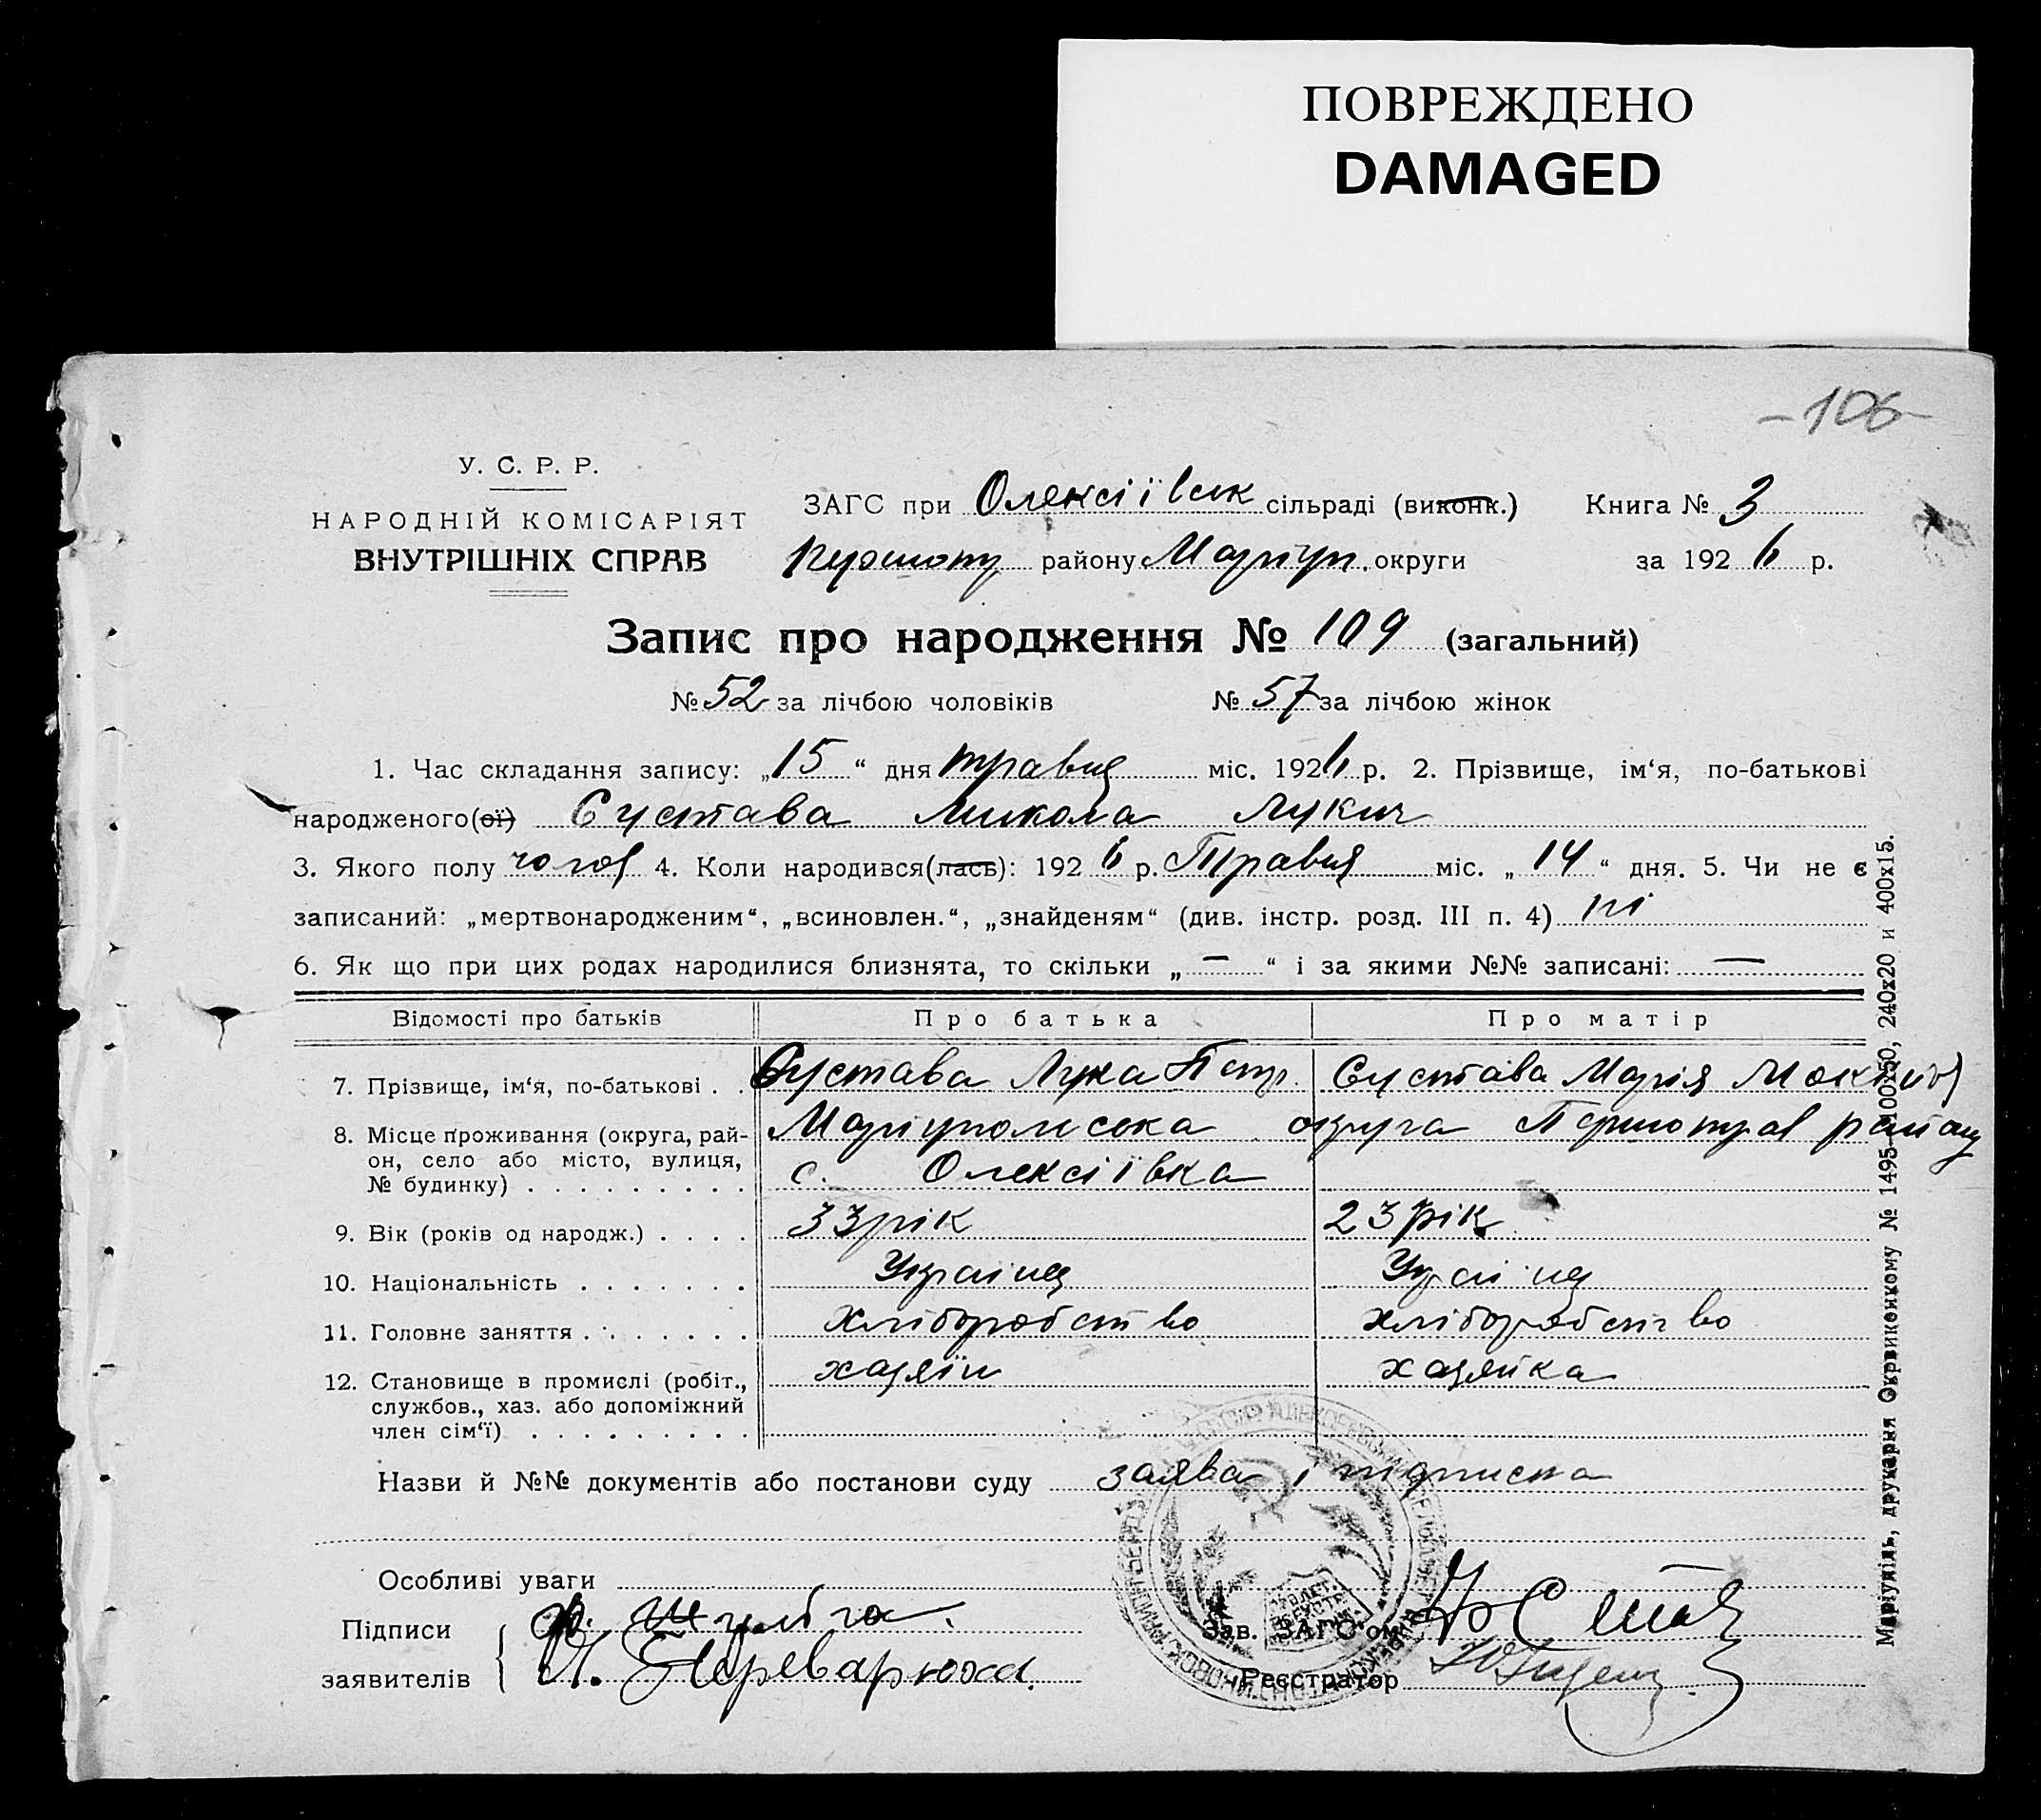 ПОВРЕЖДЕНО
DAMAGED
-106-
У. С. Р. Р.
НАРОДНІЙ КОМІСАРІЯТ
ВНУТРІШНІХ СПРАВ
ЗАГС при Олексіївск сільраді (виконк.) Книга № 3
району Маріуп. округи за 1926 р.
Запис про народження № 109 (загальний)
№ 52 за лічбою чоловіків № 57 за лічбою жінок
1. Час складання запису: „15“ дня травня міс. 1926 р. 2. Прізвище, ім‘я, по-батькові
народженого(ої) Сустава Микола Лукич
3. Якого полу чолов 4. Коли народився(лась): 1926 р. Травня міс. „14“ дня. 5. Чи не є
записаний: „мертвонародженим“, „всиновлен.“, „знайденям“ (див. інстр. розд. III п. 4) ні
6. Як що при цих родах народилися близнята, то скільки „—“ і за якими №№ записані: —
Відомості про батьків Про батька Про матір
7. Прізвище, ім‘я, по-батькові . . Сустава Лука Петр. Сустава Марія
8. Місце проживання (округа, рай- Маріупольська округа Першотрав району
он, село або місто, вулиця, с. Олексіївка
№ будинку) . . . . . . . . .
9. Вік (років од народж.) . . . . 33 рік 23 рік
10. Національність . . . . . . . Україна Україна
11. Головне заняття . . . . . . . хліборобство хліборобство
12. Становище в промислі (робіт., хазяїн хазяйка
службов., хаз. або допоміжний
член сім‘ї) . . . . . . . . .
Назви й №№ документів або постанови суду заява і підписка
Особливі уваги
Підписи Зав. ЗАГС‘ом
заявителів И. Переварюха. Реєстратор
Маріупіль, друкарня Окрвиконкому № 1495—100150, 240х20 и 400х15.